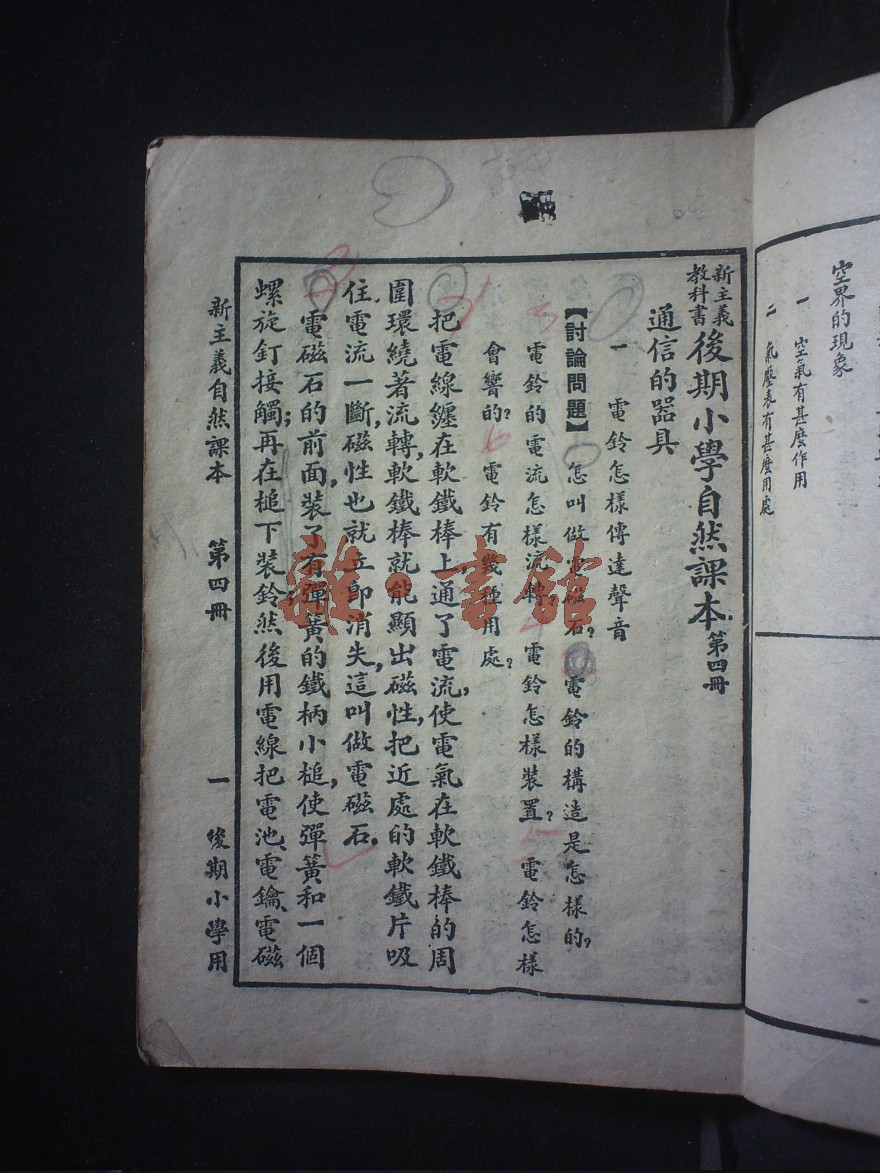 空界的現象
一　空氣有甚麼作用
二　氣壓表有甚麼用處
新主義教科書 後期小學自然課本 第四冊
通信的器具
一　電鈴怎樣傳達聲音
【討論問題】怎叫做電磁石?電鈴的構造是怎樣的?
電鈴的電流怎樣流轉?電鈴怎樣裝置?電鈴怎樣
會響的?電鈴有幾種用處?
把電線纏在軟鐵棒上,通了電流,使電氣在軟鐵棒的周
圍環繞著流轉,軟鐵棒就能顯出磁性,把近處的軟鐵片吸
住,電流一斷,磁性也就立卽消失,這叫做電磁石。
電磁石的前面,裝了有彈簧的鐵柄小槌,使彈簧和一個
螺旋釘接觸;再在槌下裝鈴;然後用電線把電池、電鑰、電磁
新主義自然課本　第四冊　一　後期小學用
雜·書館
3
6
4
5